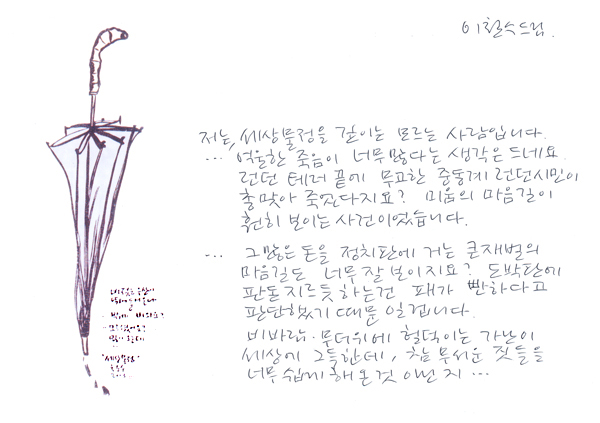 이철수드림.
저는, 세상물정을 깊이는 모르는 사람입니다.
... 억울한 죽음이 너무 많다는 생각은 드네요.
런던 테러 끝에 무고한 중동계 런던시민이
총맞아 죽었다지요? 미움의 마음길이
훤히 보이는 사건이었습니다.
... 그 많은 돈을 정치판에 거는 큰재벌의
마음길도 너무 잘 보이지요? 도박판에
판돈 지르듯 하는건 패가 빤하다고
판단했기 때문일겝니다.
비바람·무더위에 헐떡이는 가난이
세상에 그득한데, 참 무서운 짓들을
너무 쉽게 해온것 아닌지 ...